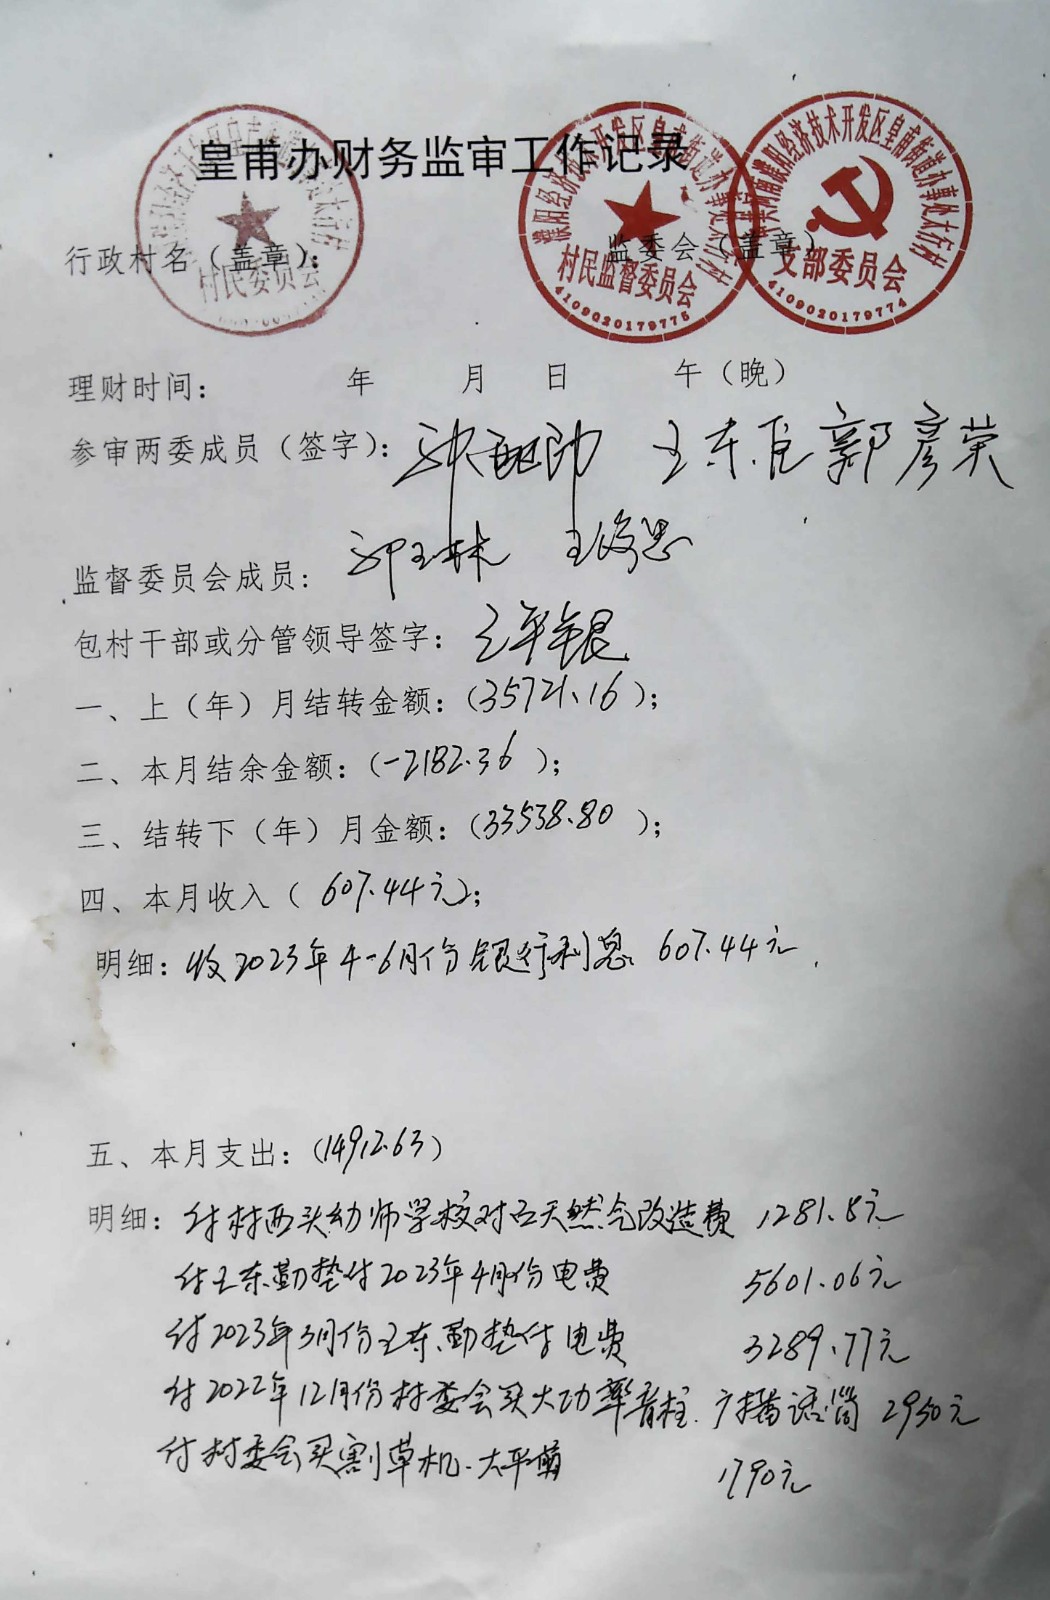 皇甫办财务监审工作记录
村民委员会
濮阳经济技术开发区皇甫街道办事处大
村民监督委员会
4109020179775
濮阳经济技术开发区皇甫街道办事处大
支部委员会
4109020179774
行政村名（盖章）： 监委会（盖章）
理财时间： 年 月 日 午（晚）
参审两委成员（签字）： 郭彦荣
监督委员会成员：
包村干部或分管领导签字： 王平银
一、上（年）月结转金额：(35721.16)；
二、本月结余金额：(-2182.36 )；
三、结转下（年）月金额：(33538.80 )；
四、本月收入（ 607.44元）；
明细：收2023年4-6月份银行利息 607.44元.
五、本月支出：(14912.63)
明细：付村西头幼师学校对面天然气改造费 1281.8元
付王东勤垫付2023年4月份电费 5601.06元
付2023年3月份王东勤垫付电费 3289.77元
付2022年12月份村委会买大功率音柱.广播话筒 2950元
付村委会买割草机.太平 1790元